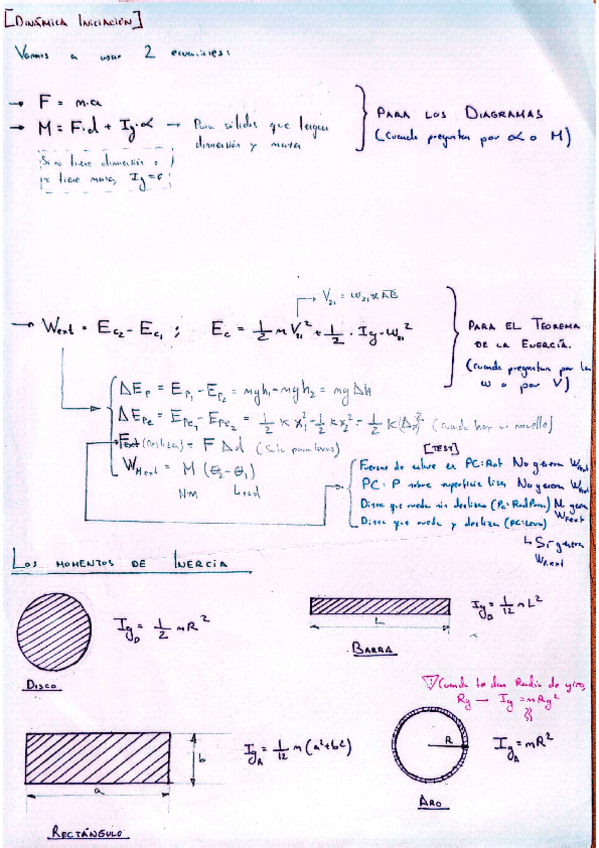 [DINÁMICA INICIACIÓN]
Vamos a usar 2 ecuaciones:
→ F = m·a
→ M = F·d + Ig·α → Para sólidos que tengan
dimensión y masa
Si no tiene dimensión o
no tiene masa, Ig=0
PARA LOS DIAGRAMAS
(Cuando preguntan por α o M)
V₂₁ = ω₂₁ x AB
→ Wext = Ec₂ - Ec₁ ; Ec = 1/2 m V₂₁² + 1/2 · Ig · ω₂₁²
PARA EL TEOREMA
DE LA ENERGÍA.
(Cuando preguntan por la
ω o por V)
ΔEp = Ep₁ - Ep₂ = mgh₁ - mgh₂ = mgΔh
ΔEpe = Epe₁ - Epe₂ = 1/2 k x₁² - 1/2 k x₂² = 1/2 k(Δx)² (Cuando hay un muelle)
Fext (Desliza) = F Δd (Solo para)
WMext = M (θ₂ - θ₁)
N·m
[TEST]
Fuerzas de enlace en PC: Rot No genera Wext
PC: P sobre superficie lisa No genera Wext
Disco que rueda sin deslizar M genera
WFext
Disco que rueda y desliza
↳ Sí genera
Wext
LOS MOMENTOS DE INERCIA
IgD = 1/2 mR²
DISCO
IgD = 1/12 mL²
L
BARRA
Cuando te dan Radio de giro,
Rg → Ig = mRg²
b
a
IgA = 1/12 m(a²+b²)
RECTÁNGULO
R
IgA = mR²
ARO